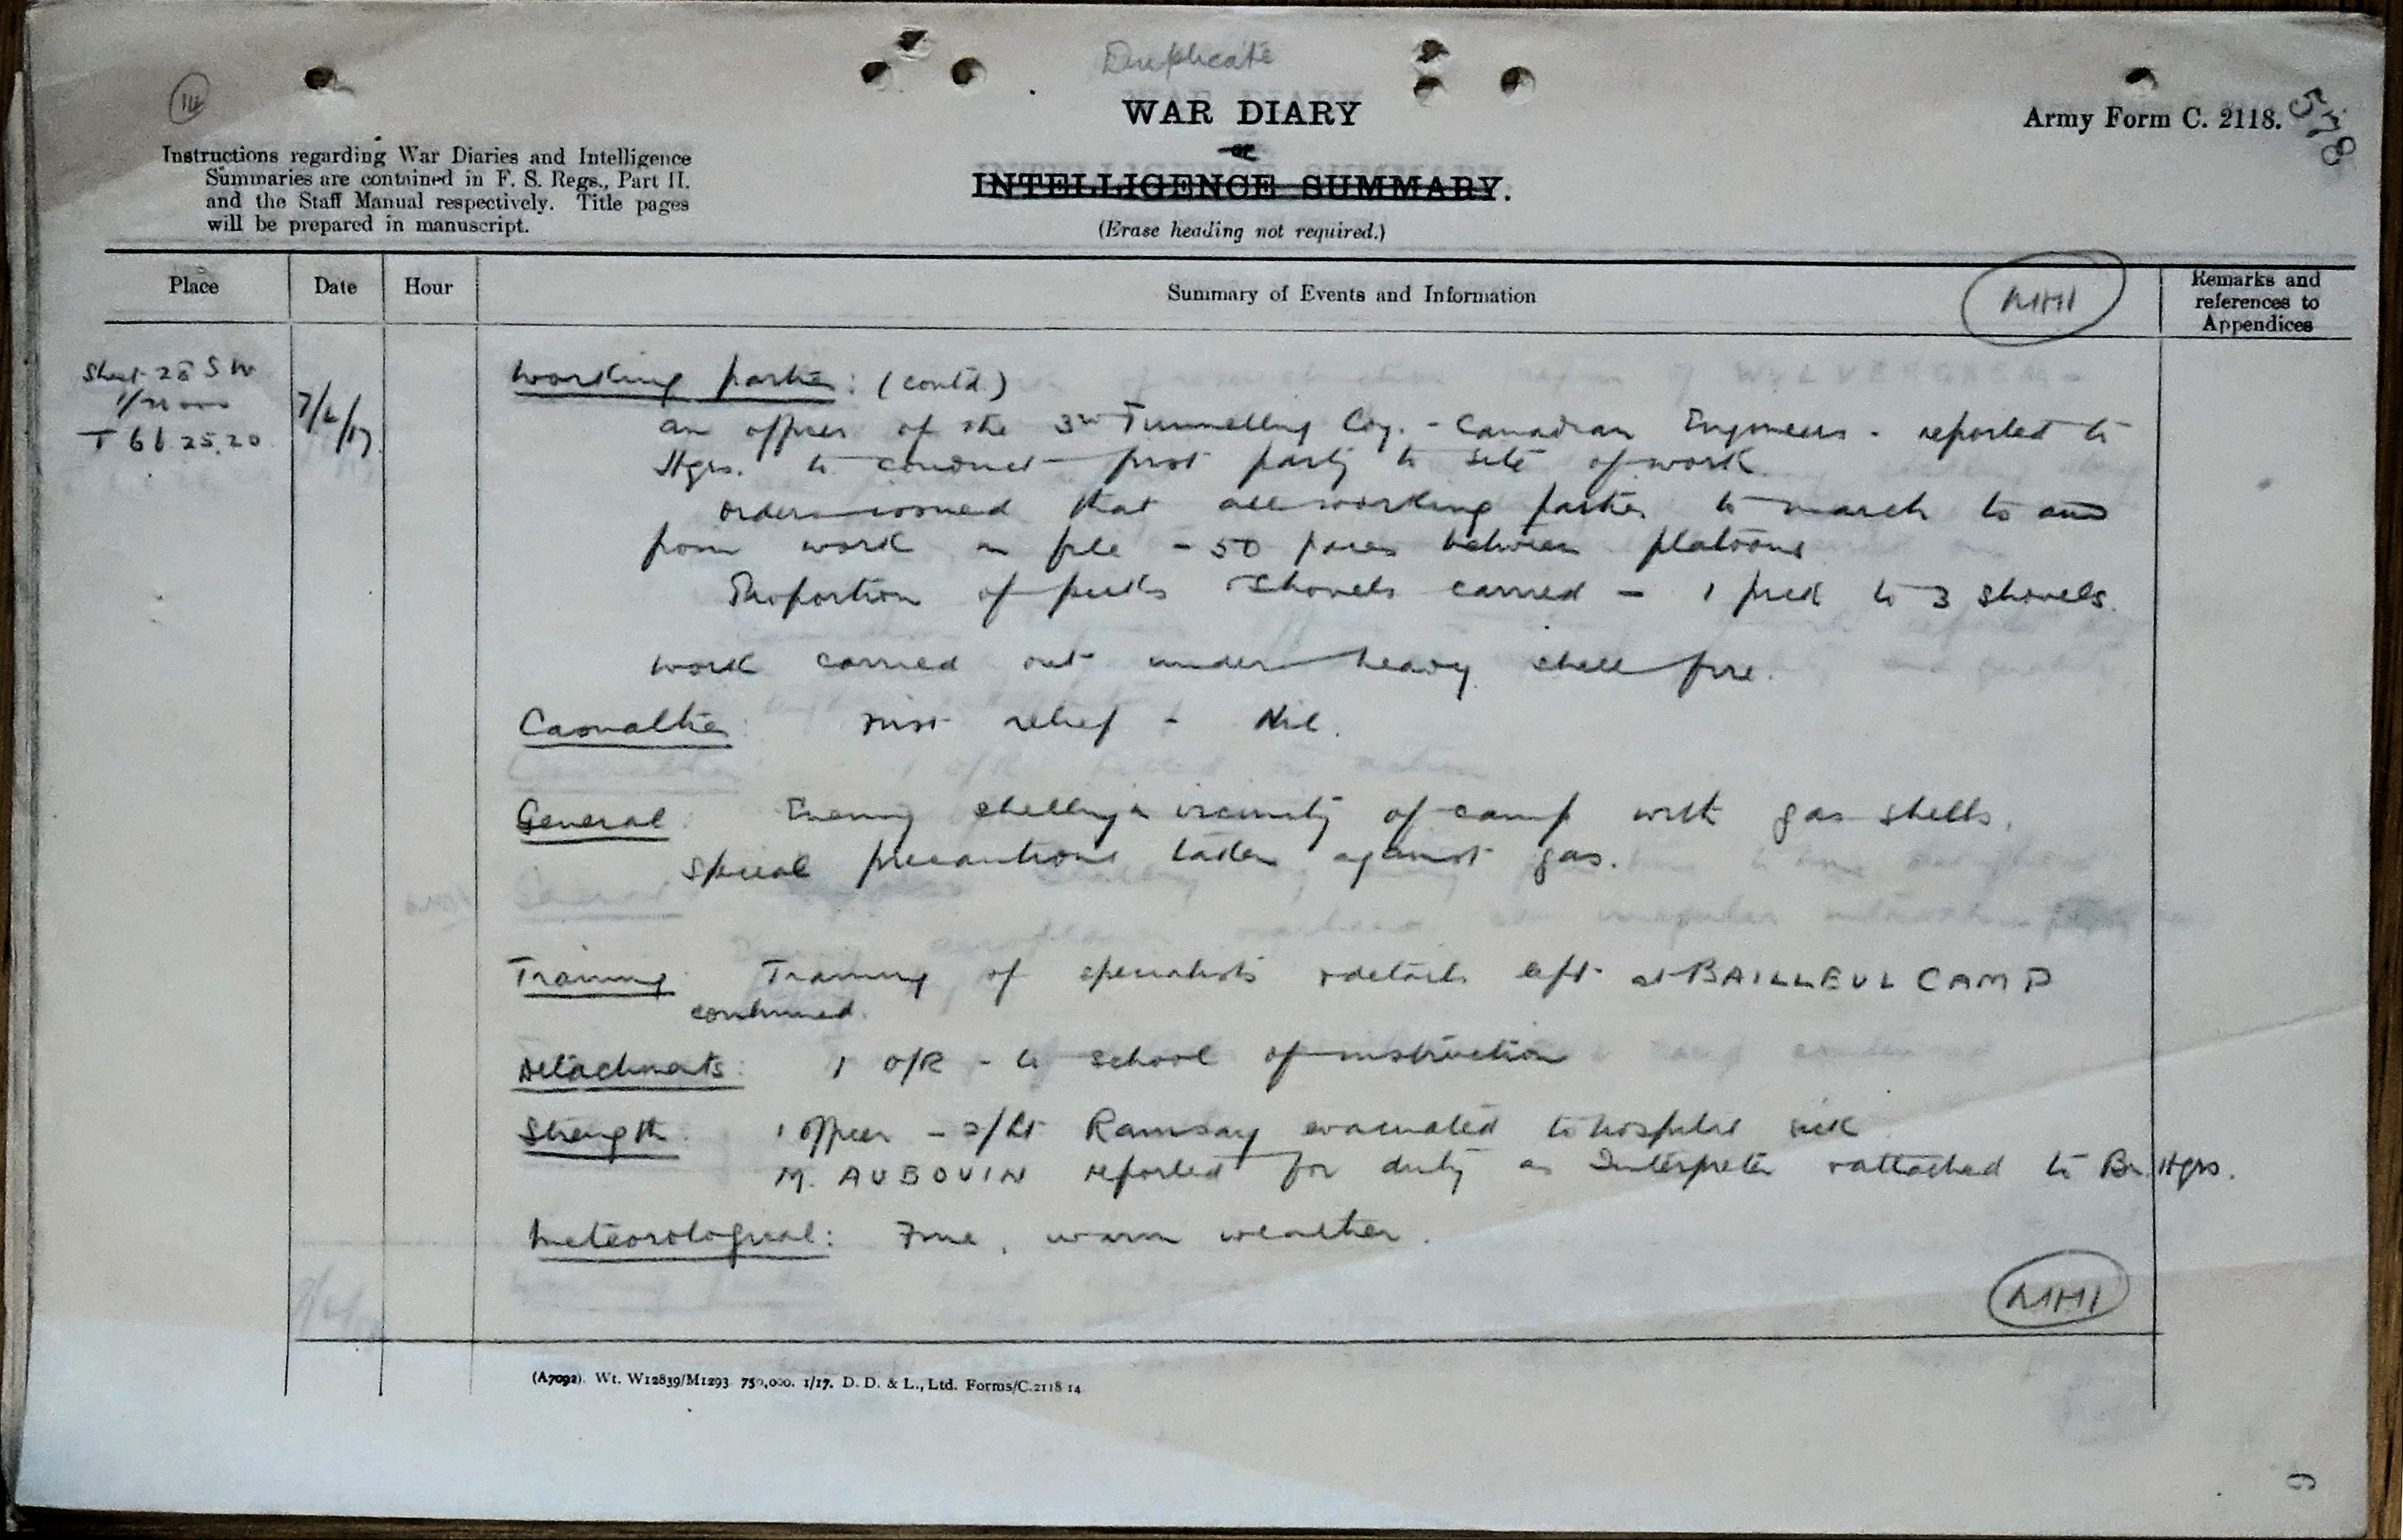 Duplicate
WAR DIARY
or
INTELLIGENCE SUMMARY.
(Erase heading not required.)
Army Form C. 2118.
Instructions regarding War Diaries and Intelligence
Summaries are contained in F. S. Regs., Part II.
and the Staff Manual respectively. Title pages
will be prepared in manuscript.
Place
Date
Hour
Summary of Events and Information
MHI
Remarks and
references to
Appendices
Sheet 28 SW
T 6 b 25.20
7/6/17
Working parties: (contd.)
an officer of the 3rd Tunnelling Coy. - Canadian Engineers - reported to
Hqrs. to conduct first party to site of work.
Orders issued that all working parties to march to and
from work in file - 50 paces between platoons
Proportion of picks & shovels carried - 1 pick to 3 shovels.
Work carried out under heavy shell fire.
Casualties: First relief - Nil.
General: Enemy shelling in vicinity of camp with gas shells.
Special precautions taken against gas.
Training: Training of specialists & details left at BAILLEUL CAMP
continued.
Detachments: 1 O/R - to school of instruction
Strength: 1 Officer - 2/Lt Ramsay evacuated to hospital sick
M. AUBOUIN reported for duty as Interpreter & attached to Bn. Hqrs.
Meteorological: Fine, warm weather.
MHI
(A7092). Wt. W12839/M1293 750,000. 1/17. D. D. & L., Ltd. Forms/C.2118 14